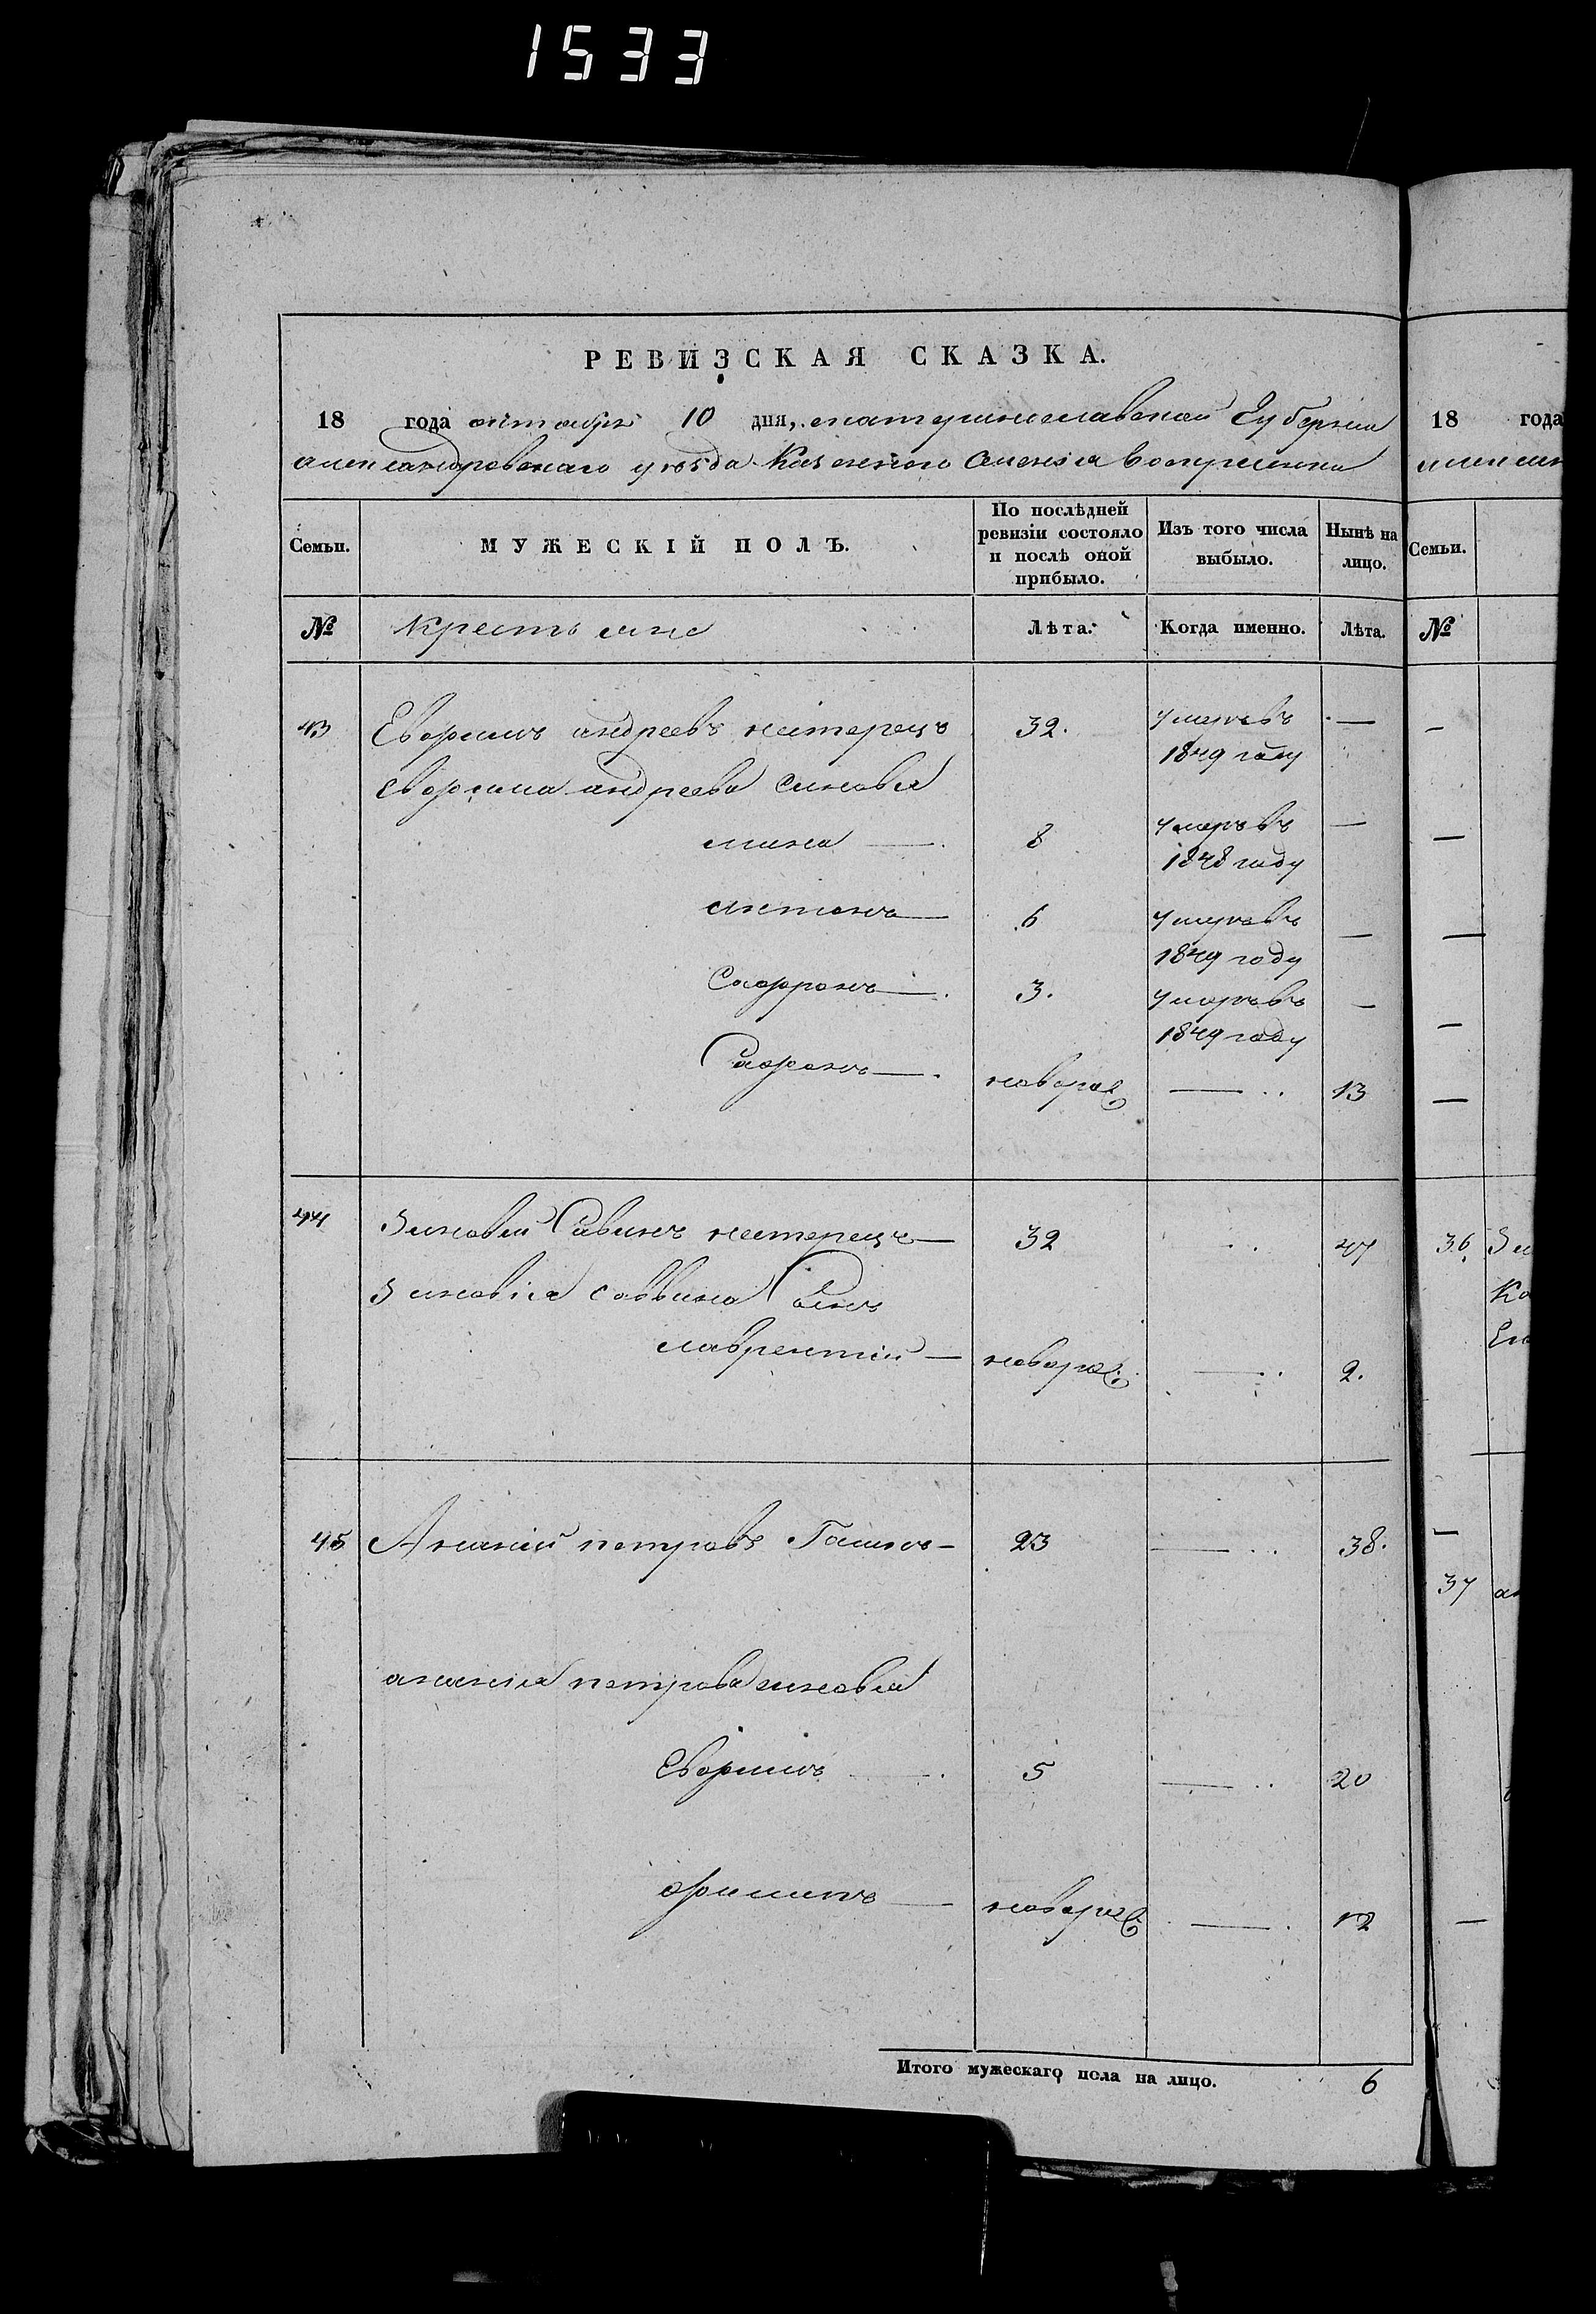 1533
РЕВИЗСКАЯ СКАЗКА.
18 года октября 10 дня, екатеринославской Губернии
александровскаго уезда Казенного Селения Воскресенки
Семьи.
МУЖЕСКІЙ ПОЛЪ.
По послѣдней
ревизіи состояло
и послѣ оной
прибыло.
Изъ того числа
выбыло.
Нынѣ на
лицо.
№ Крестьяне Лѣта. Когда именно. Лѣта.
43 Евфимъ андреевъ нетерецъ 32. умеръ въ —
1849 году
Евфима андреева Сыновья
мина — 8 умеръ въ —
1848 году
антонъ — 6 умеръ въ —
1849 году
Софронъ — 3. умеръ въ —
1849 году
— новорож 13
44 Зиновий Савинъ нетерецъ — 32 47
Зиновія саввина Сынъ
лаврентій — новорож — 2.
45 Ананій петровъ — 23 — 38.
ананія петрова сыновья
Евфимъ — 5 — 20
филипъ — новорож — 12
Итого мужескаго пола на лицо. 6
18 года
Семьи.
№
—
—
—
—
—
36 Зи
Ко
—
37 ан
—